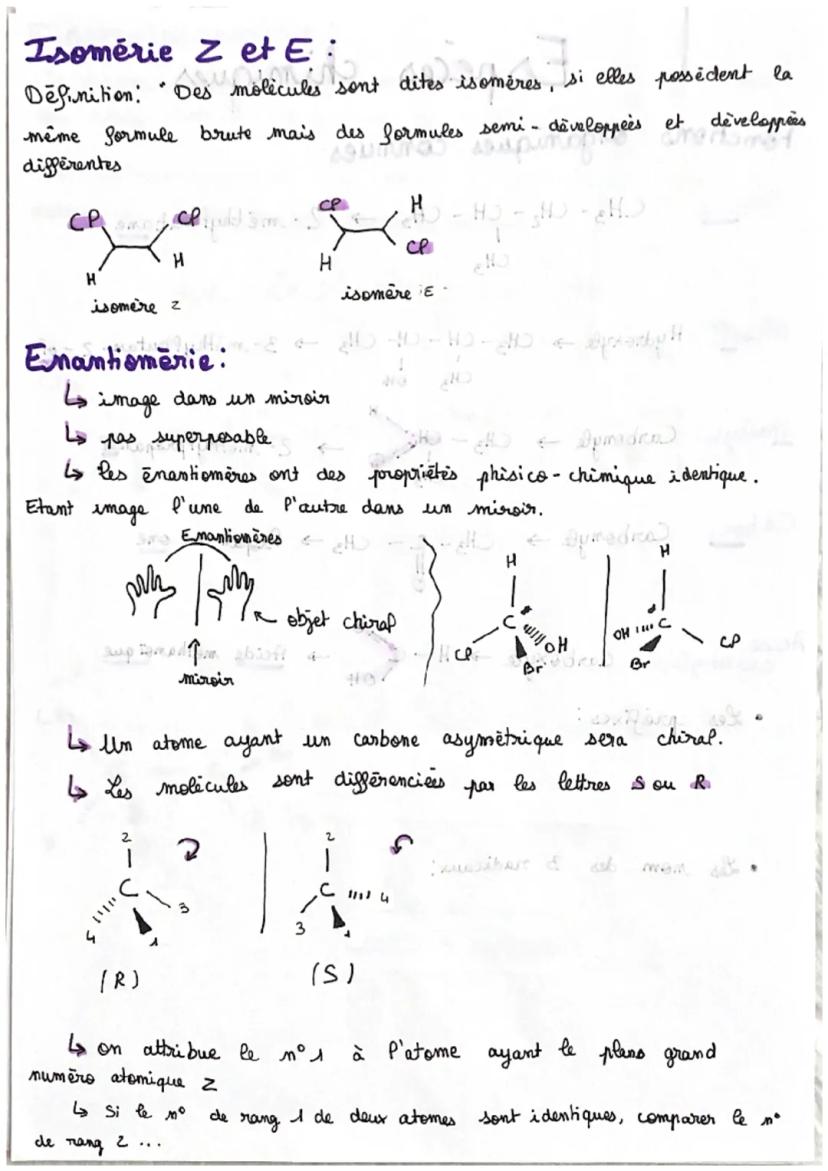 Isomérie Z et E :
Définition: " Des molécules sont dites isomères, si elles possèdent la
même formule brute mais des formules semi-développées et développées
différentes
Cl Cl H H
isomère Z
Cl H H Cl
isomère E
Enantiomérie :
↳ image dans un miroir
↳ pas superposable
↳ les énantiomères ont des propriétés phisico-chimique identique.
Etant image l'une de l'autre dans un miroir.
Enantiomères
objet chiral
miroir
H
C*
Cl OH
Br
H
OH C*
Cl
Br
↳ Un atome ayant un carbone asymétrique sera chiral.
↳ Les molécules sont différenciées par les lettres S ou R
2
C
3
4 1
(R)
2
C 4
3 1
(S)
↳ on attribue le n°1 à l'atome ayant le plans grand
numéro atomique Z
↳ Si le n° de rang 1 de deux atomes sont identiques, comparer le n°
de rang 2 ...